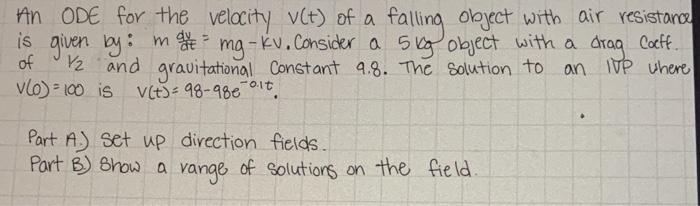 An ODE for the velocity v(t) of a falling object with air resistance
is given by: m dv/dt = mg - kv. Consider a 5 kg object with a drag Coeff.
of 1/2 and gravitational Constant 9.8. The solution to an IVP where
v(0) = 100 is v(t) = 98-98e^-0.1t.
Part A.) Set up direction fields.
Part B.) Show a range of solutions on the field.